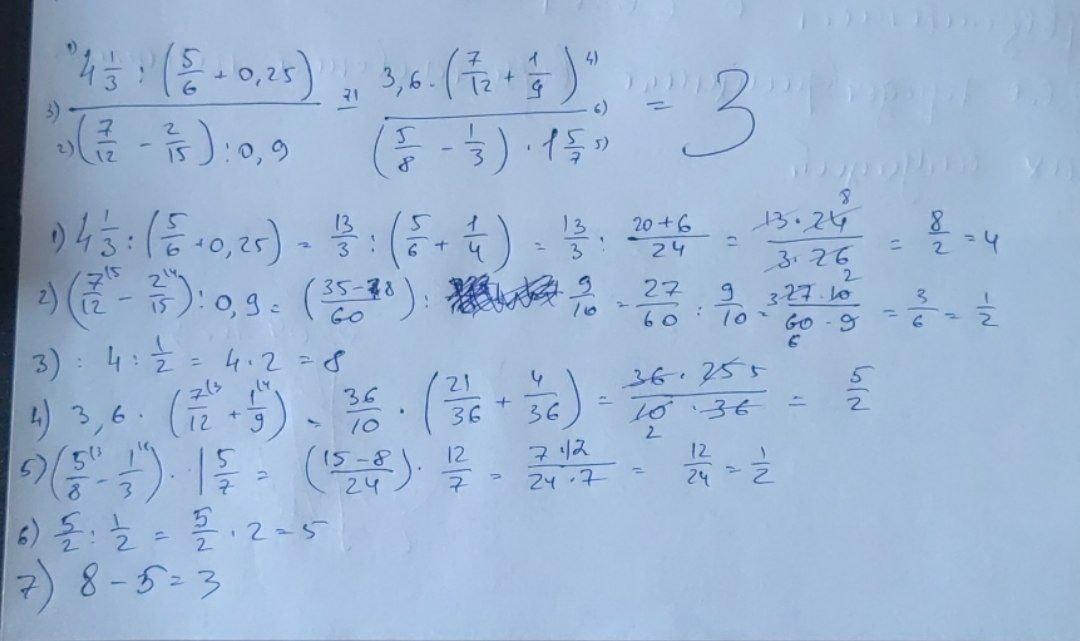 1) 4 1/3 : (5/6 + 0,25) 7) − 3,6 · (7/12 + 1/9) 4)
3) ———— 6) ———— = 3
2) (7/12 − 2/15) : 0,9 (5/8 − 1/3) · 1 5/7 5)
1) 4 1/3 : (5/6 + 0,25) = 13/3 : (5/6 + 1/4) = 13/3 : (20+6)/24 = (13·24 8)/(3·26 2) = 8/2 = 4
2) (7(5/12 − 2(4/15) : 0,9 = ((35−8)/60) : 9/10 = 27/60 : 9/10 = (3 27·10)/(60 6·9) = 3/6 = 1/2
3) : 4 : 1/2 = 4·2 = 8
4) 3,6 · (7(3/12 + 1(4/9) = 36/10 · (21/36 + 4/36) = (36·25 5)/(10 2·36) = 5/2
5) (5(3/8 − 1(8/3) · 1 5/7 = ((15−8)/24) · 12/7 = (7·12)/(24·7) = 12/24 = 1/2
6) 5/2 : 1/2 = 5/2 · 2 = 5
7) 8 − 5 = 3